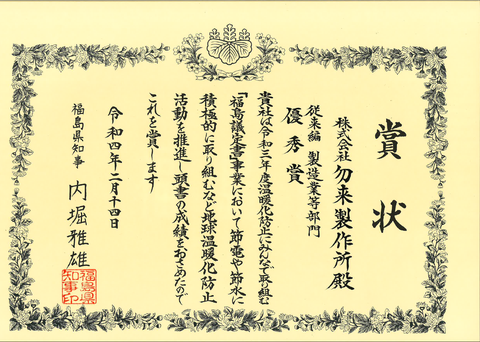 賞状
株式会社 勿来製作所 殿
従来編 製造業等部門
優秀賞
貴社は令和三年度温暖化防止にみんなで取り組む
「福島議定書」事業において節電や節水に
積極的に取り組むなど地球温暖化防止
活動を推進し頭書の成績をおさめたので
これを賞します
令和四年二月十四日
福島県知事 内堀雅雄
福島県
知事印